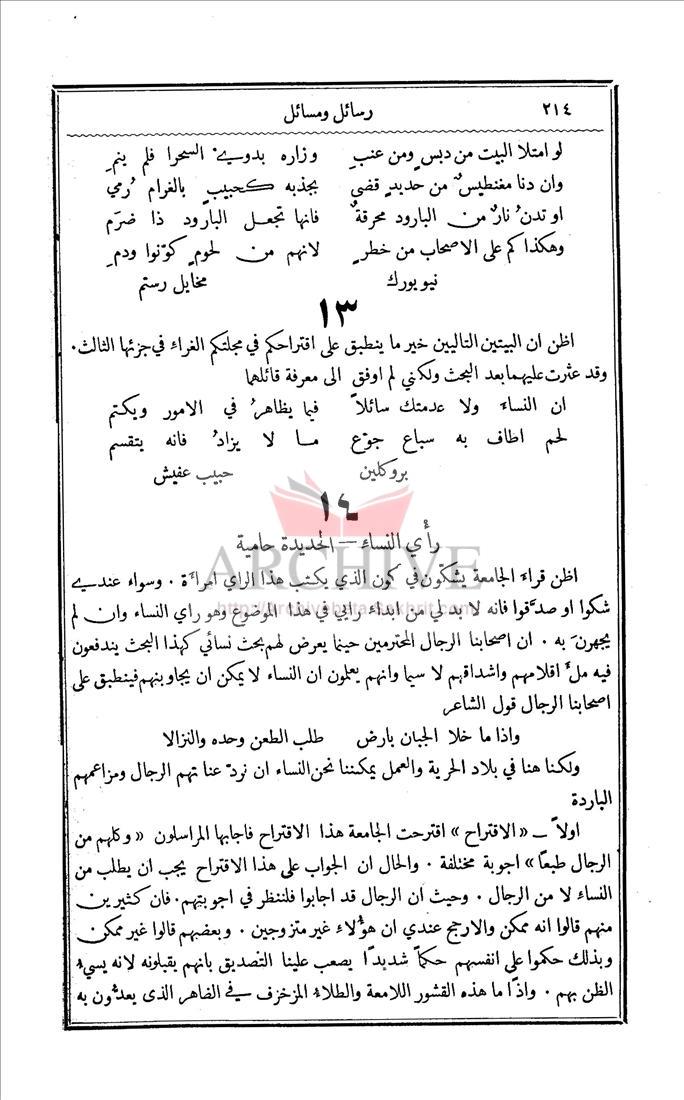 ٢١٤ رسائل ومسائل
لو امتلا البيت من دبسٍ ومن عنبِ وزاره بدويٌّ السحرا فلم ينمِ
وان دنا مغنطيسٌ من حديدٍ قضى بجذبه كحبيبٍ بالغرام رُمي
او تدنُ نارٌ من البارود محرقةٌ فانها تجعل البارود ذا ضرَم
وهكذا كم على الاصحاب من خطرٍ لانهم من لحومٍ كوّنوا ودمِ
نيو يورك مخايل رستم
١٣
اظن ان البيتين التاليين خير ما ينطبق على اقتراحكم في مجلتكم الغراء في جزئها الثالث.
وقد عثرت عليهما بعد البحث ولكني لم اوفق الى معرفة قائلهما
ان النساء ولا عدمتك سائلاً فيما يظاهرُ في الامور ويكتم
لحم اطاف به سباع جوّع ما لا يزادُ فانه يتقسم
بروكلين حبيب عفيش
١٤
رأي النساء — الحديدة حامية
ARCHIVE
اظن قراء الجامعة يشكّون في كون الذي يكتب هذا الراي امرأة . وسواء عندي
شكوا او صدَّقوا فانه لا بد لي من ابداء رايي في هذا الموضوع وهو راي النساء وان لم
يجهرنَ به . ان اصحابنا الرجال المحترمين حينما يعرض لهم بحث نسائي كهذا البحث يندفعون
فيه ملءَ اقلامهم واشداقهم لا سيما وانهم يعلمون ان النساء لا يمكن ان يجاوبنهم فينطبق على
اصحابنا الرجال قول الشاعر
واذا ما خلا الجبان بارض طلب الطعن وحده والنزالا
ولكنا هنا في بلاد الحرية والعمل يمكننا نحن النساء ان نردّ عنا تهم الرجال ومزاعمهم
الباردة
اولاً — «الاقتراح» اقترحت الجامعة هذا الاقتراح فاجابها المراسلون «وكلهم من
الرجال طبعًا» اجوبة مختلفة . والحال ان الجواب على هذا الاقتراح يجب ان يطلب من
النساء لا من الرجال . وحيث ان الرجال قد اجابوا فلننظر في اجوبتهم. فان كثيرين
منهم قالوا انه ممكن والارجح عندي ان هؤلاء غير متزوجين . وبعضهم قالوا غير ممكن
وبذلك حكموا على انفسهم حكماً شديدًا يصعب علينا التصديق بانهم يقبلونه لانه يسيء
الظن بهم . واذًا ما هذه القشور اللامعة والطلاء المزخرف في الظاهر الذي يعدُّون به